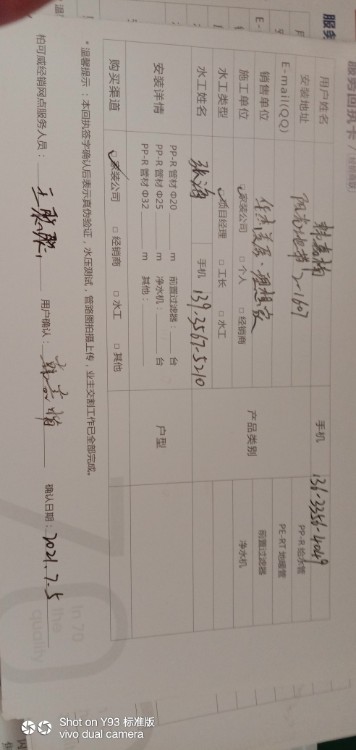 服务回执卡
用户姓名
手机 136-3356-4049
安装地址 阳光地带 2-1607
E-mail(QQ)
销售单位
施工单位 ☑家装公司 □个人 □经销商
水工类型 ☑项目经理 □工长 □水工
水工姓名 张海 手机 139.3567.5210
产品类别 PP-R 给水管
PE-RT 地暖管
前置过滤器
净水机
安装详情 PP-R 管材 Φ20 m 前置过滤器: 台
PP-R 管材 Φ25 m 净水机: 台
PP-R 管材 Φ32 m 其他:
户型
购买渠道 ☑家装公司 □经销商 □水工 □其他
*温馨提示:本回执签字确认后表示真伪验证,水压测试,管路图拍摄上传,业主交割工作已全部完成。
柏可威经销网点服务人员: 用户确认: 确认日期: 2021.7.5
quality
Shot on Y93 标准版
vivo dual camera